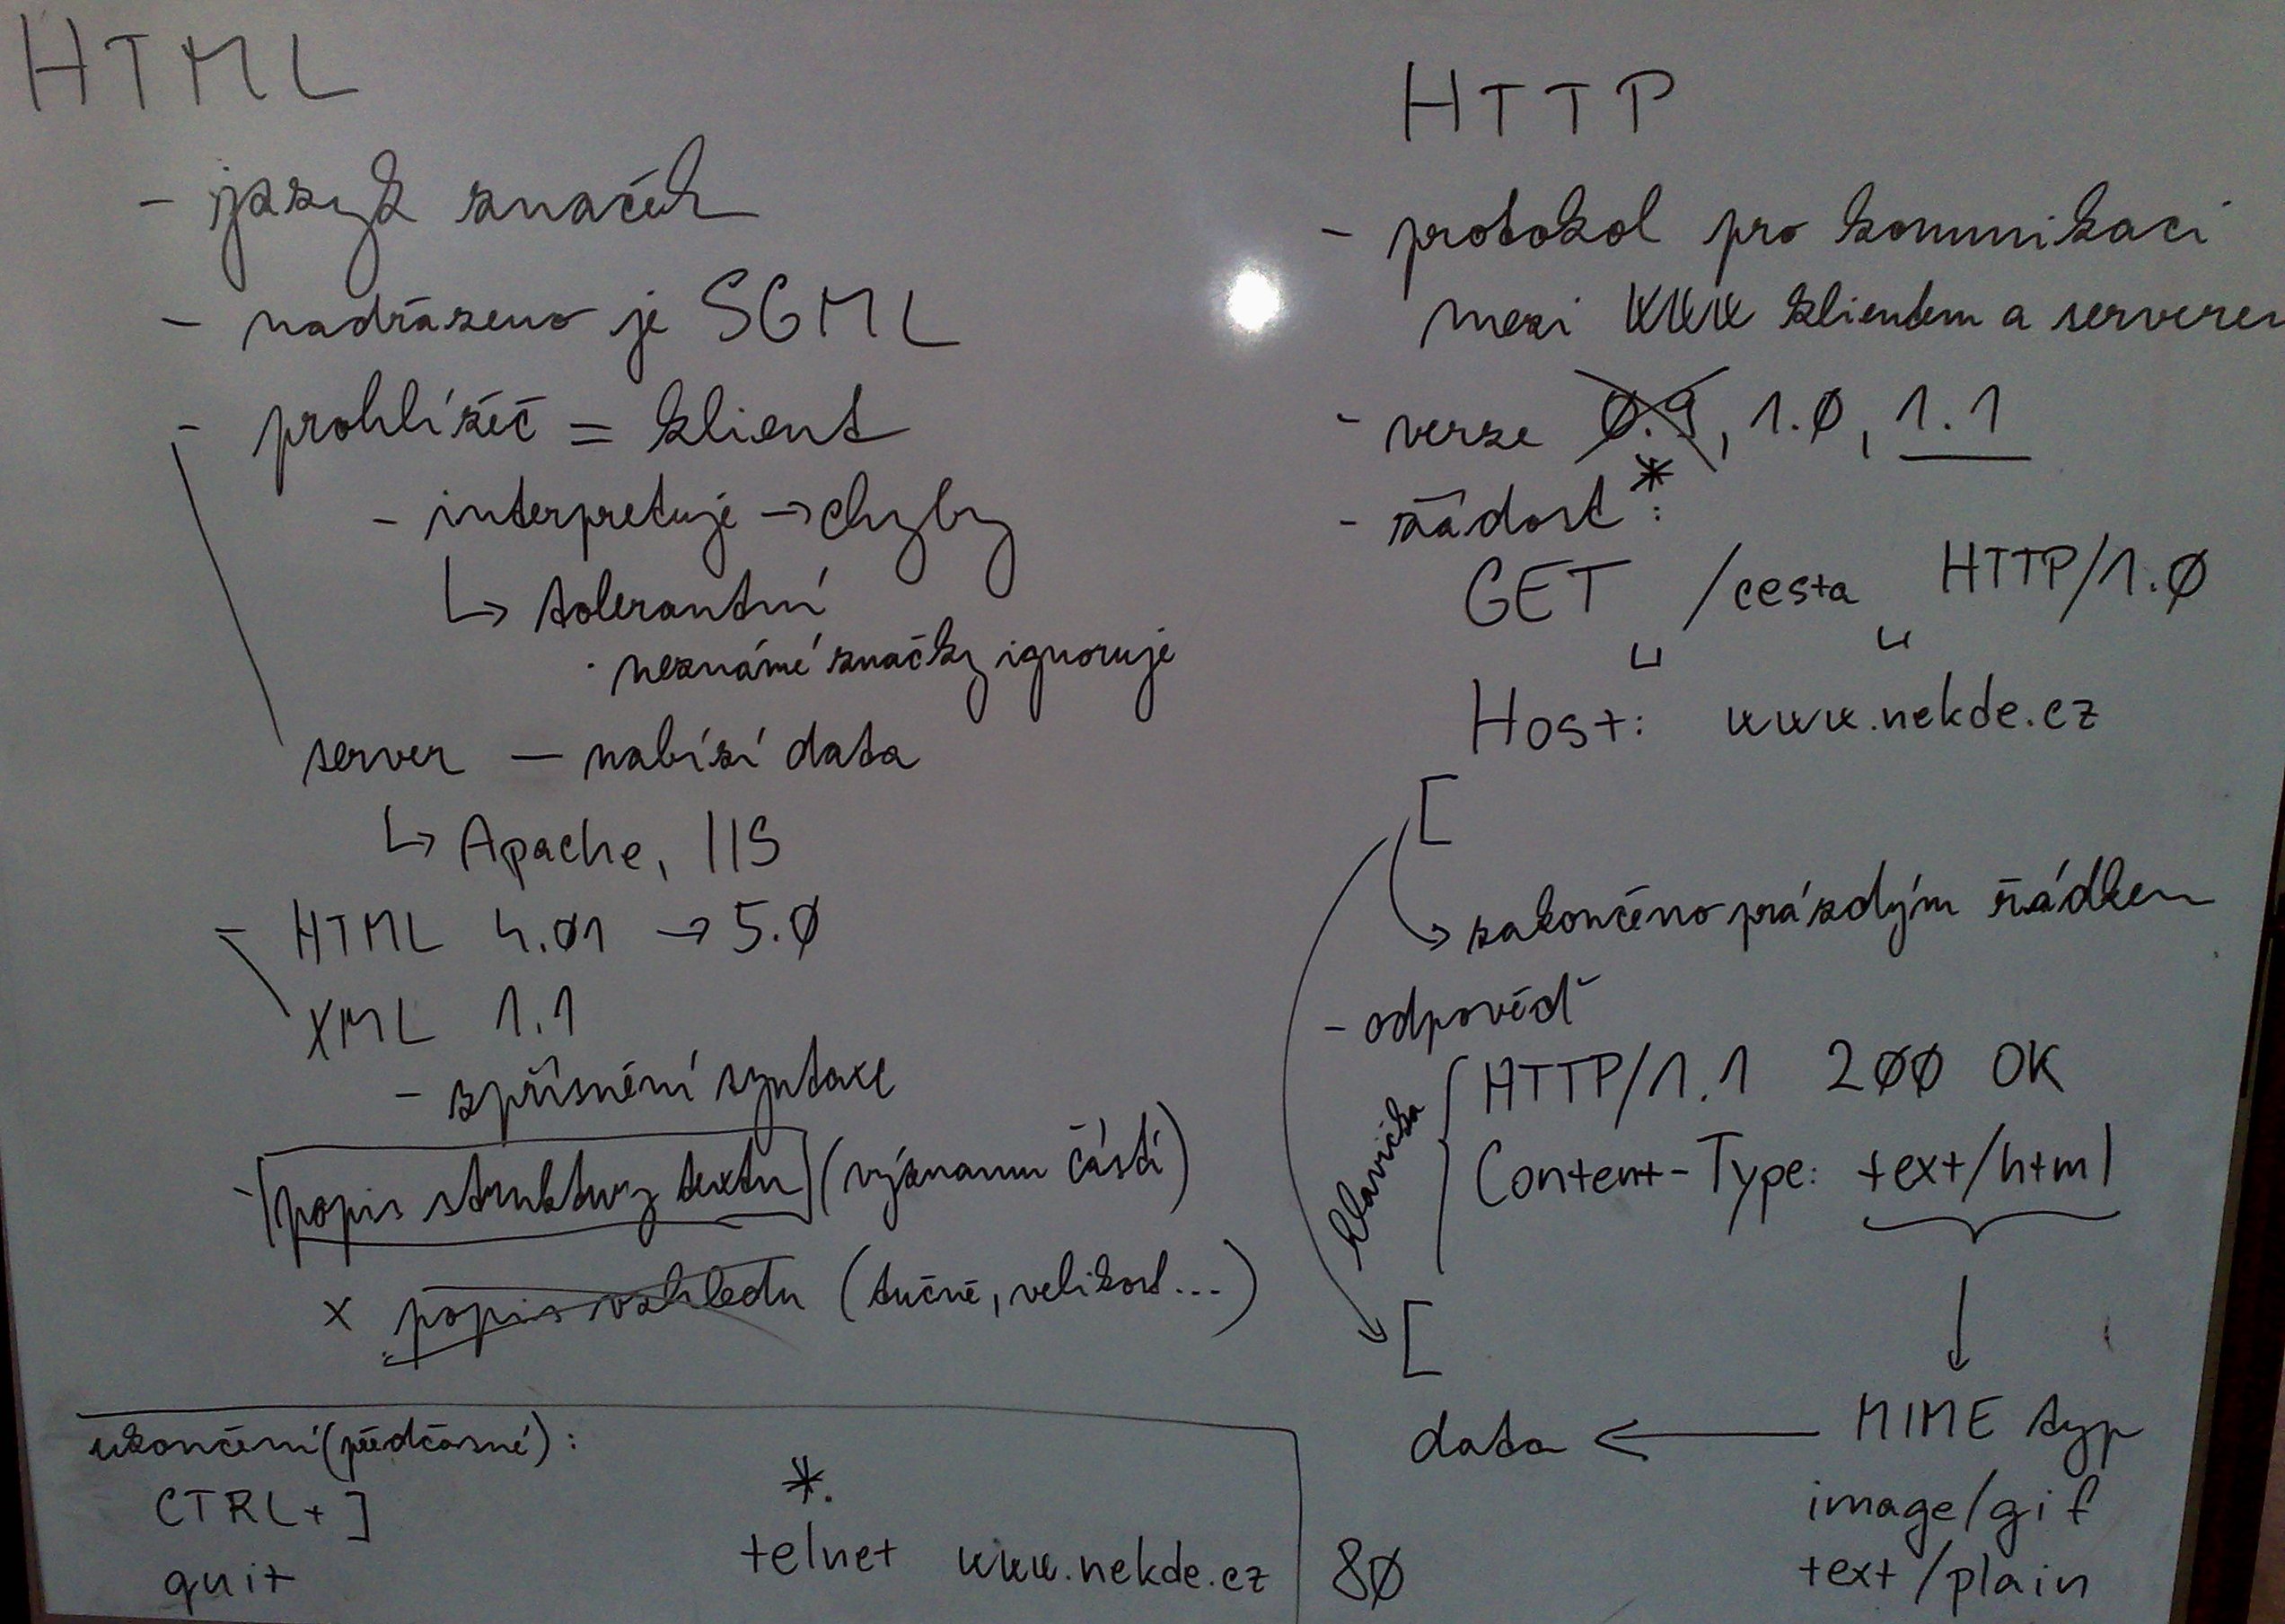 HTML
- jazyk značek
- nadřazeno je SGML
- prohlížeč = klient
- interpretuje → chyby
↳ tolerantní
· neznámé značky ignoruje
server — nabízí data
↳ Apache, IIS
- HTML 4.01 → 5.0
XML 1.1
- zpřísnění syntaxe
- popis struktury textu (význam částí)
x popis vzhledu (tučné, velikost...)
ukončení (předčasné):
CTRL+]
quit
*.
telnet www.nekde.cz 80
HTTP
- protokol pro komunikaci
mezi WWW klientem a serverem
- verze 0.9, 1.0, 1.1
- žádost*:
GET ␣ /cesta ␣ HTTP/1.0
Host: www.nekde.cz
[
→ zakončeno prázdým řádkem
- odpověď
hlavička
HTTP/1.1 200 OK
Content-Type: text/html
[
data ← MIME typ
image/gif
text/plain